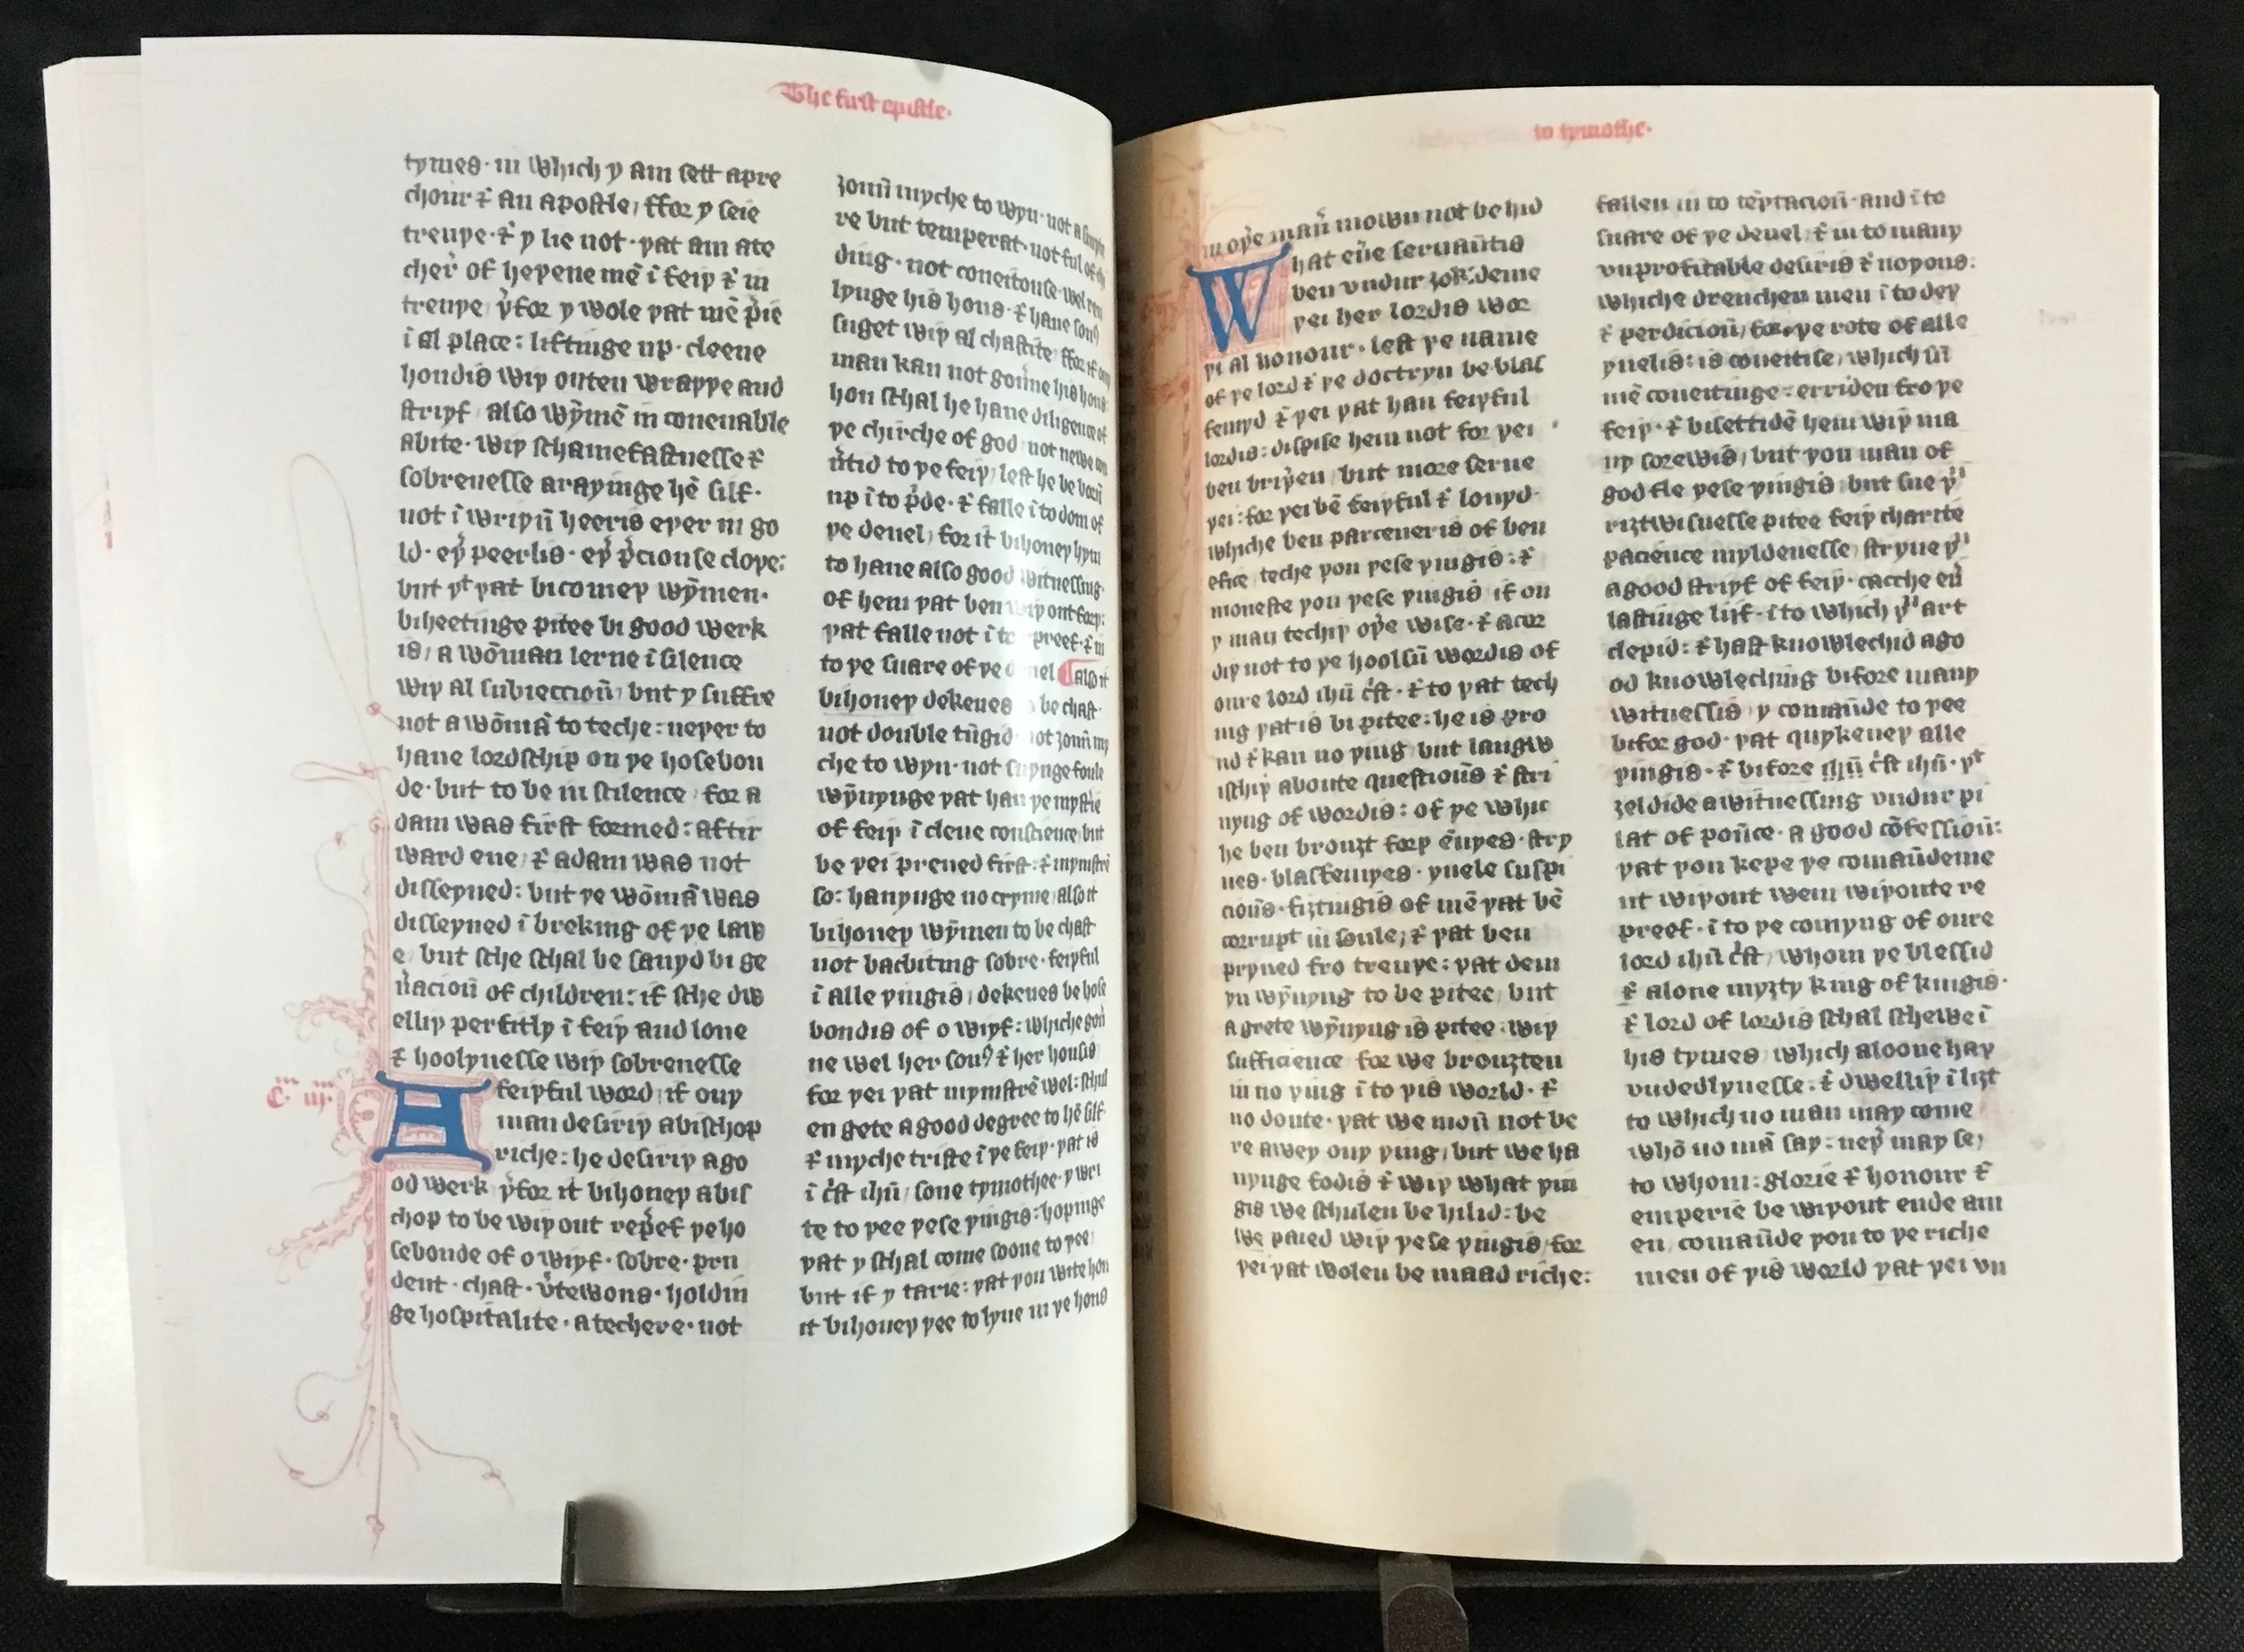 The first epistle·
tymes· in which y am sett a pre
chour ⁊ an apostle, ffor y seie
treuþe· ⁊ y lie not· þat am a te
cher of heþene mē ī feiþ ⁊ in
treuþe, þ̉for y wole þat mē p̉ie
ī al place: liftinge up· cleene
hondis wiþ outen wraþþe and
stryf, also wȳmē in couenable
abite· wiþ schamefastnesse ⁊
sobrenesse arayinge hē silf·
not ī wriþū heeris eþer in go
ld· eþ̉ peerlis· eþ̉ p̉ciouse cloþe:
but þᵗ þat bicomeþ wȳmen·
biheetinge pitee bi good werk
is, a wōman lerne ī silence
wiþ al subieccioū, but y suffre
not a wōmā to teche: neþer to
haue lordschip on þe hosebon
de· but to be in scilence, for a
dam was first formed: aftir
ward eue, ⁊ adam was not
disseyued: but þe wōmā was
disseyued ī breking of þe law
e, but sche schal be sauyd bi ge
n̉acioū of children: if sche dw
elliþ perfitly ī feiþ and loue
⁊ hoolynesse wiþ sobrenesse
C· iij·
A feiþful word, if ony
man desiriþ a bischop
riche: he desiriþ a go
od werk, þ̉for it bihoueþ a bis
chop to be wiþ out rep̉ef þe ho
sebonde of o wijf· sobre· pru
dent· chast· v̉tewous· holdin
ge hospitalite· a techere· not
ȝouū myche to wyn· not a smyte
re but temperat· not ful of chi
ding· not coueitouse· wel reu
lynge his hous· ⁊ haue sones
suget wiþ al chastite, ffor if ony
man kan not gou̓ne his hous
hou schal he haue diligence of
þe chirche of god, not newe con
u̓tid to þe feiþ, lest he be borū
up ī to p̉de· ⁊ falle ī to dom of
þe deuel, for it bihoueþ hym
to haue also good witnessing·
of hem þat ben wiþ out forþ:
þat falle not ī to repreef· ⁊ in
to þe snare of þe deuel, ¶ also it
bihoueþ dekenes to be chast·
not double tūgid· not ȝouū my
che to wyn· not suynge foule
wȳnynge þat han þe mysterie
of feiþ ī clene conscience, but
be þei preued first: ⁊ mynistre
so: hauynge no cryme, also it
bihoueþ wȳmen to be chast
not bacbiting sobre· feiþful
ī alle þingis, dekenes be hose
bondis of o wijf: whiche gou̓
ne wel her sones ⁊ her housis
for þei þat mynistrē wel: schul
en gete a good degree to hē silf·
⁊ myche triste ī þe feiþ· þat is
ī c̉st ihū, sone tymothee· y wri
te to þee þese þingis: hopinge
þat y schal come soone to þee,
but if y tarie: þat þou wite hou
it bihoueþ þee to lyue in þe hous
to tymothe·
in oþ̉e man̄ mown not be hid
What eu̓e seruauntis
ben vndur ȝok: deme
þei her lordis wor
þi al honour· lest þe name
of þe lord ⁊ þe doctryn be blas
femyd, ⁊ þei þat han feiþful
lordis: dispise hem not for þei
ben briþ̉en, but more serue
þei: for þei bē feiþful ⁊ louyd·
whiche ben parceneris of ben
efice, teche þou þese þingis: ⁊
moneste þou þese þingis, if on
y man techiþ oþ̉e wise· ⁊ acor
diþ not to þe hoolsū wordis of
oure lord ihū c̉st· ⁊ to þat tech
ing þat is bi pitee: he is pro
ud ⁊ kan no þing, but langw
ischiþ aboute questioūs ⁊ stri
uyng of wordis: of þe whic
he ben brouȝt forþ ēuyes· stry
ues· blasfemyes· yuele suspi
cioūs· fiȝtingis of mē þat bē
corrupt in soule, ⁊ þat ben
pryued fro treuþe: þat dem
yn wȳnyng to be pitee, but
a grete wȳnyng is pitee· wiþ
sufficience, for we brouȝten
in no þing ī to þis world· ⁊
no doute· þat we mou not be
re awey ony þing, but we ha
uynge fodis ⁊ wiþ what þin
gis we schulen be hilid: be
we paied wiþ þese þingis, for
þei þat wolen be maad riche:
fallen in to tēptacioū· and ī to
snare of þe deuel, ⁊ in to many
vnprofitable desiris ⁊ noyous:
whiche drenchen men ī to deþ
⁊ perdicioū, for þe rote of alle
yuelis: is coueitise, which sū
mē coueitinge: erriden fro þe
feiþ· ⁊ bisettidē hem wiþ ma
ny sorewis, but þou man of
god fle þese þingis, but sue þᵘ
riȝtwisnesse pitee feiþ charite
pacience myldenesse, stryue þᵘ
a good stryf of feiþ· cacche eu̓
lastinge lijf· ī to which þᵘ art
clepid: ⁊ hast knowlechid a go
od knowleching bifore many
witnessis, y comaūde to þee
bifor god· þat quykeneþ alle
þingis· ⁊ bifore ihū c̉st ihū· þᵗ
ȝeldide a witnessing vndur pi
lat of poūce· a good cōfessioū:
þat þou kepe þe comaūdeme
nt wiþout wem wiþoute re
preef· ī to þe comyng of oure
lord ihū c̉st, whom þe blessid
⁊ alone myȝty king of kingis·
⁊ lord of lordis schal schewe ī
his tymes, which aloone haþ
vndedlynesse· ⁊ dwelliþ ī liȝt
to which no man may come
whō no mā say: neþ̉ may se,
to whom: glorie ⁊ honour ⁊
emperie be wiþout ende am
en, comaūde þou to þe riche
men of þis world þat þei vn